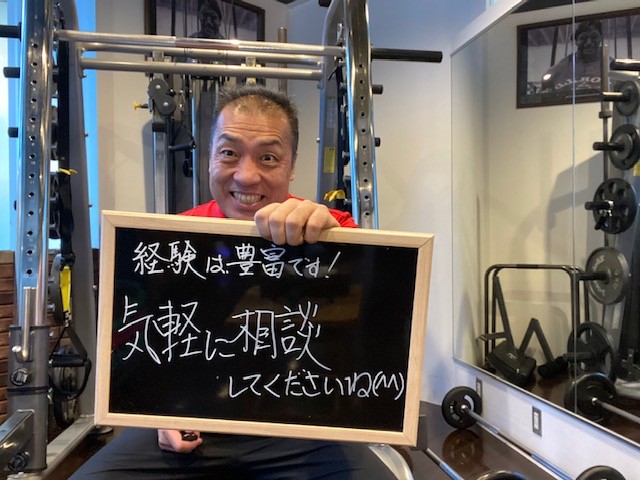 経験は豊富です!
気軽に相談
してくださいね(M)